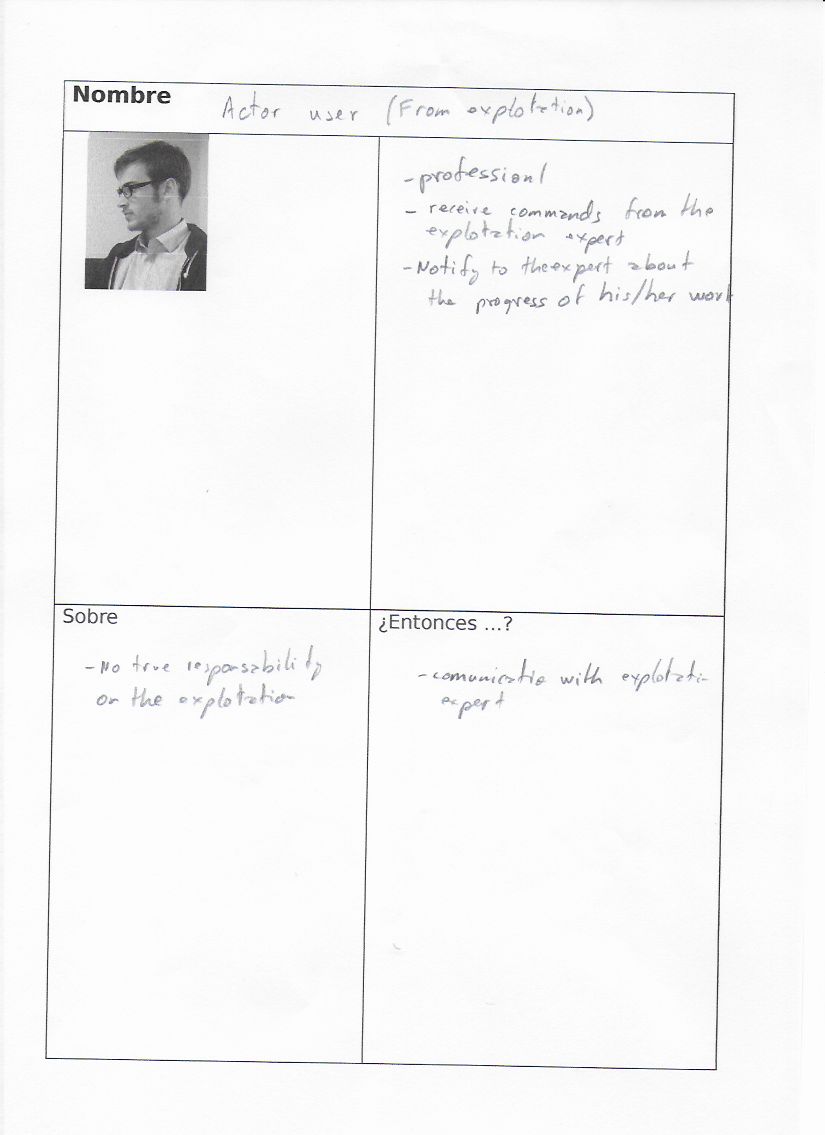 Nombre Actor user (From explotation)
- professionl
- receive commands from the
explotation expert
- Notify to the expert about
the progress of his/her work
Sobre
- No true responsability
on the explotation
¿Entonces ...?
- comunicatio with explotati-
expert